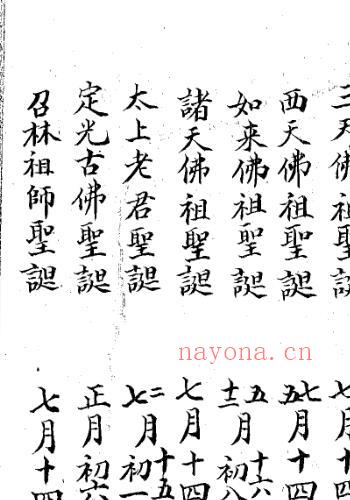 三天佛祖聖誕
西天佛祖聖誕
如来佛祖聖誕
諸天佛祖聖誕
太上老君聖誕
定光古佛聖誕
召林祖師聖誕
七月十四
七五月十四
五十二月十六初八
七月十四
二七月十五初一
正月初六
七月十四
nayona.cn